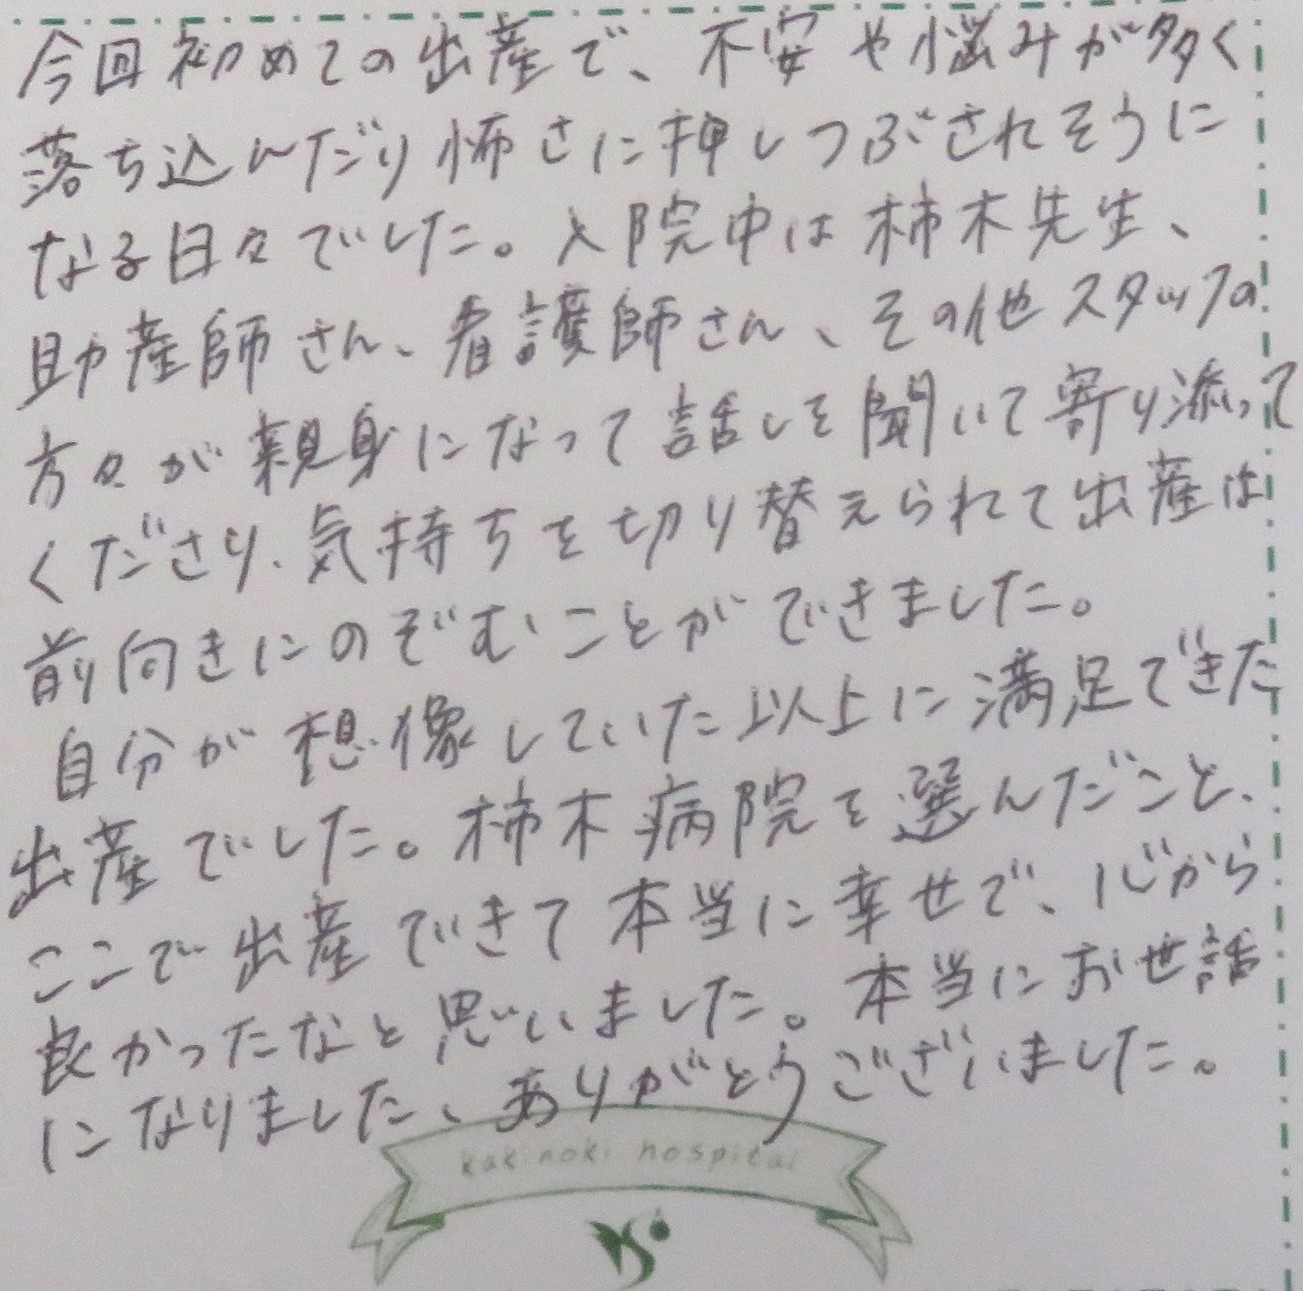 今回初めての出産で、不安や悩みが多く
落ち込んだり怖さに押しつぶされそうに
なる日々でした。入院中は柿木先生、
助産師さん、看護師さん、その他スタッフの
方々が親身になって話しを聞いて寄り添って
くださり、気持ちを切り替えられて出産は
前向きにのぞむことができました。
自分が想像していた以上に満足できた
出産でした。柿木病院を選んだこと、
ここで出産できて本当に幸せで、心から
良かったなと思いました。本当にお世話
になりました、ありがとうございました。
kakinoki hospital